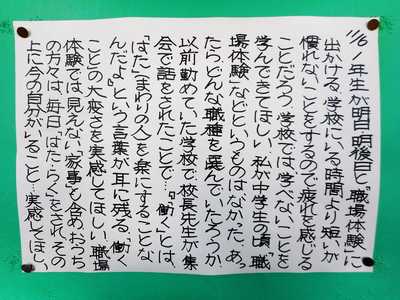 11/6 1年生が明日明後日と「職場体験」に
出かける。学校にいる時間より短いが
慣れないことをするので疲れを感じる
ことだろう。学校では学べないことを
学んできてほしい。私が中学生の頃、「職
場体験」などというものはなかった。あっ
たら、どんな職種を選んでいたろうか。
以前勤めていた学校で校長先生が集
会で話をされたことで…。『「働く」とは、
「はた」(まわりの人)を楽にすることな
んだよ』という言葉が耳に残る。「働く
ことの大変さを実感してほしい。職場
体験では見えない家事も含めおうち
の方々は、毎日「はた・らく」をされ、その
上に今の自分がいること…実感してほしい。